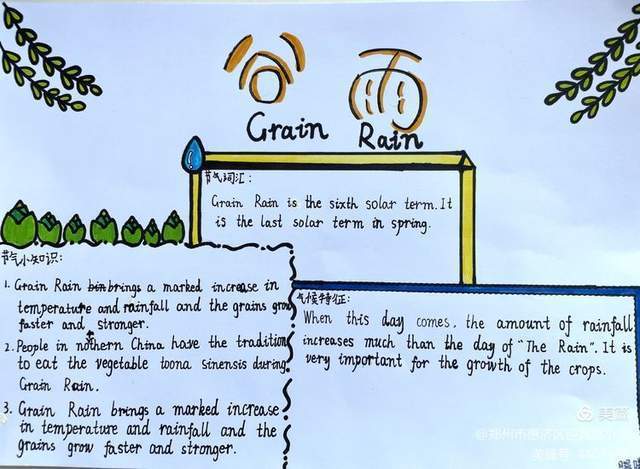 谷雨
Grain Rain
节气词汇:
Grain Rain is the sixth solar term. It
is the last solar term in spring.
节气小知识:
1. Grain Rain brings a marked increase in
temperature and rainfall and the grains grow
faster and stronger.
2. People in nothern China have the tradition
to eat the vegetable toona sinensis during
Grain Rain.
3. Grain Rain brings a marked increase
in temperature and rainfall and the
grains grow faster and stronger.
气候特征:
When this day comes, the amount of rainfall
increases much than the day of "The Rain". It is
very important for the growth of the crops.
美篇